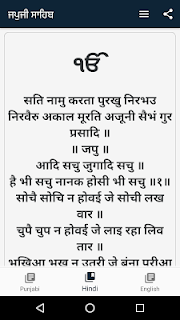 ਜਪੁਜੀ ਸਾਹਿਬ
ੴ
सति नामु करता पुरखु निरभउ
निरवैरु अकाल मूरति अजूनी सैभं गुर
प्रसादि ॥
॥ जपु ॥
आदि सचु जुगादि सचु ॥
है भी सचु नानक होसी भी सचु ॥१॥
सोचै सोचि न होवई जे सोची लख
वार ॥
चुपै चुप न होवई जे लाइ रहा लिव
तार ॥
भुखिआ भुख न उतरी जे बंना पुरीआ
Punjabi
Hindi
English